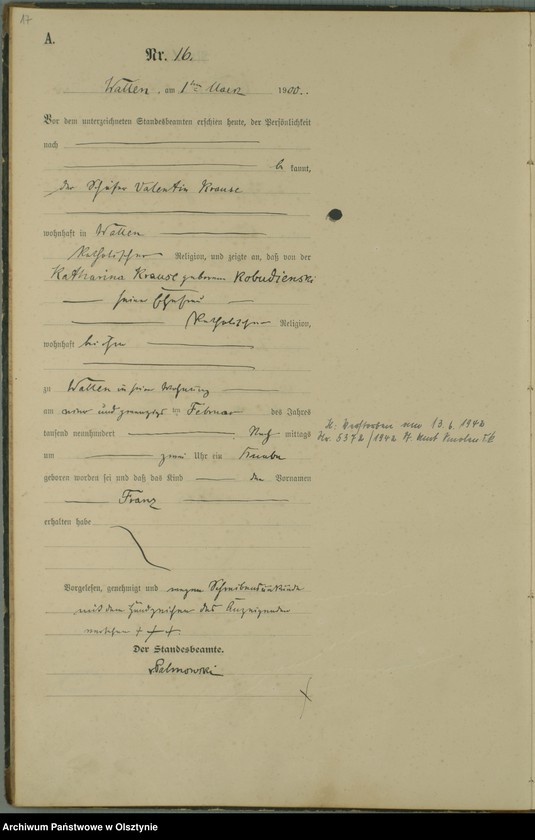 17
A.
Nr. 16.
Wallen, am 1ten Maerz 1900..
Vor dem unterzeichneten Standesbeamten erschien heute, der Persönlichkeit
nach
be kannt,
der Schäfer Valentin Krause
wohnhaft in Wallen
katholischer Religion, und zeigte an, daß von der
Katharina Krause geborenen Kobudzienski
seiner Ehefrau
katholischer Religion,
wohnhaft bei ihm
zu Wallen in seiner Wohnung
am und zwanzigsten Februar des Jahres
tausend neunhundert Nach mittags
um zwei Uhr ein Knabe
geboren worden sei und daß das Kind den Vornamen
Franz
erhalten habe
Vorgelesen, genehmigt und wegen Schreibensunkunde
mit den Handzeichen des Anzeigenden
versehen + + +
Der Standesbeamte.
Palmowski
verstorben am 13.6.1942
Nr. 5372/1942
Archiwum Państwowe w Olsztynie